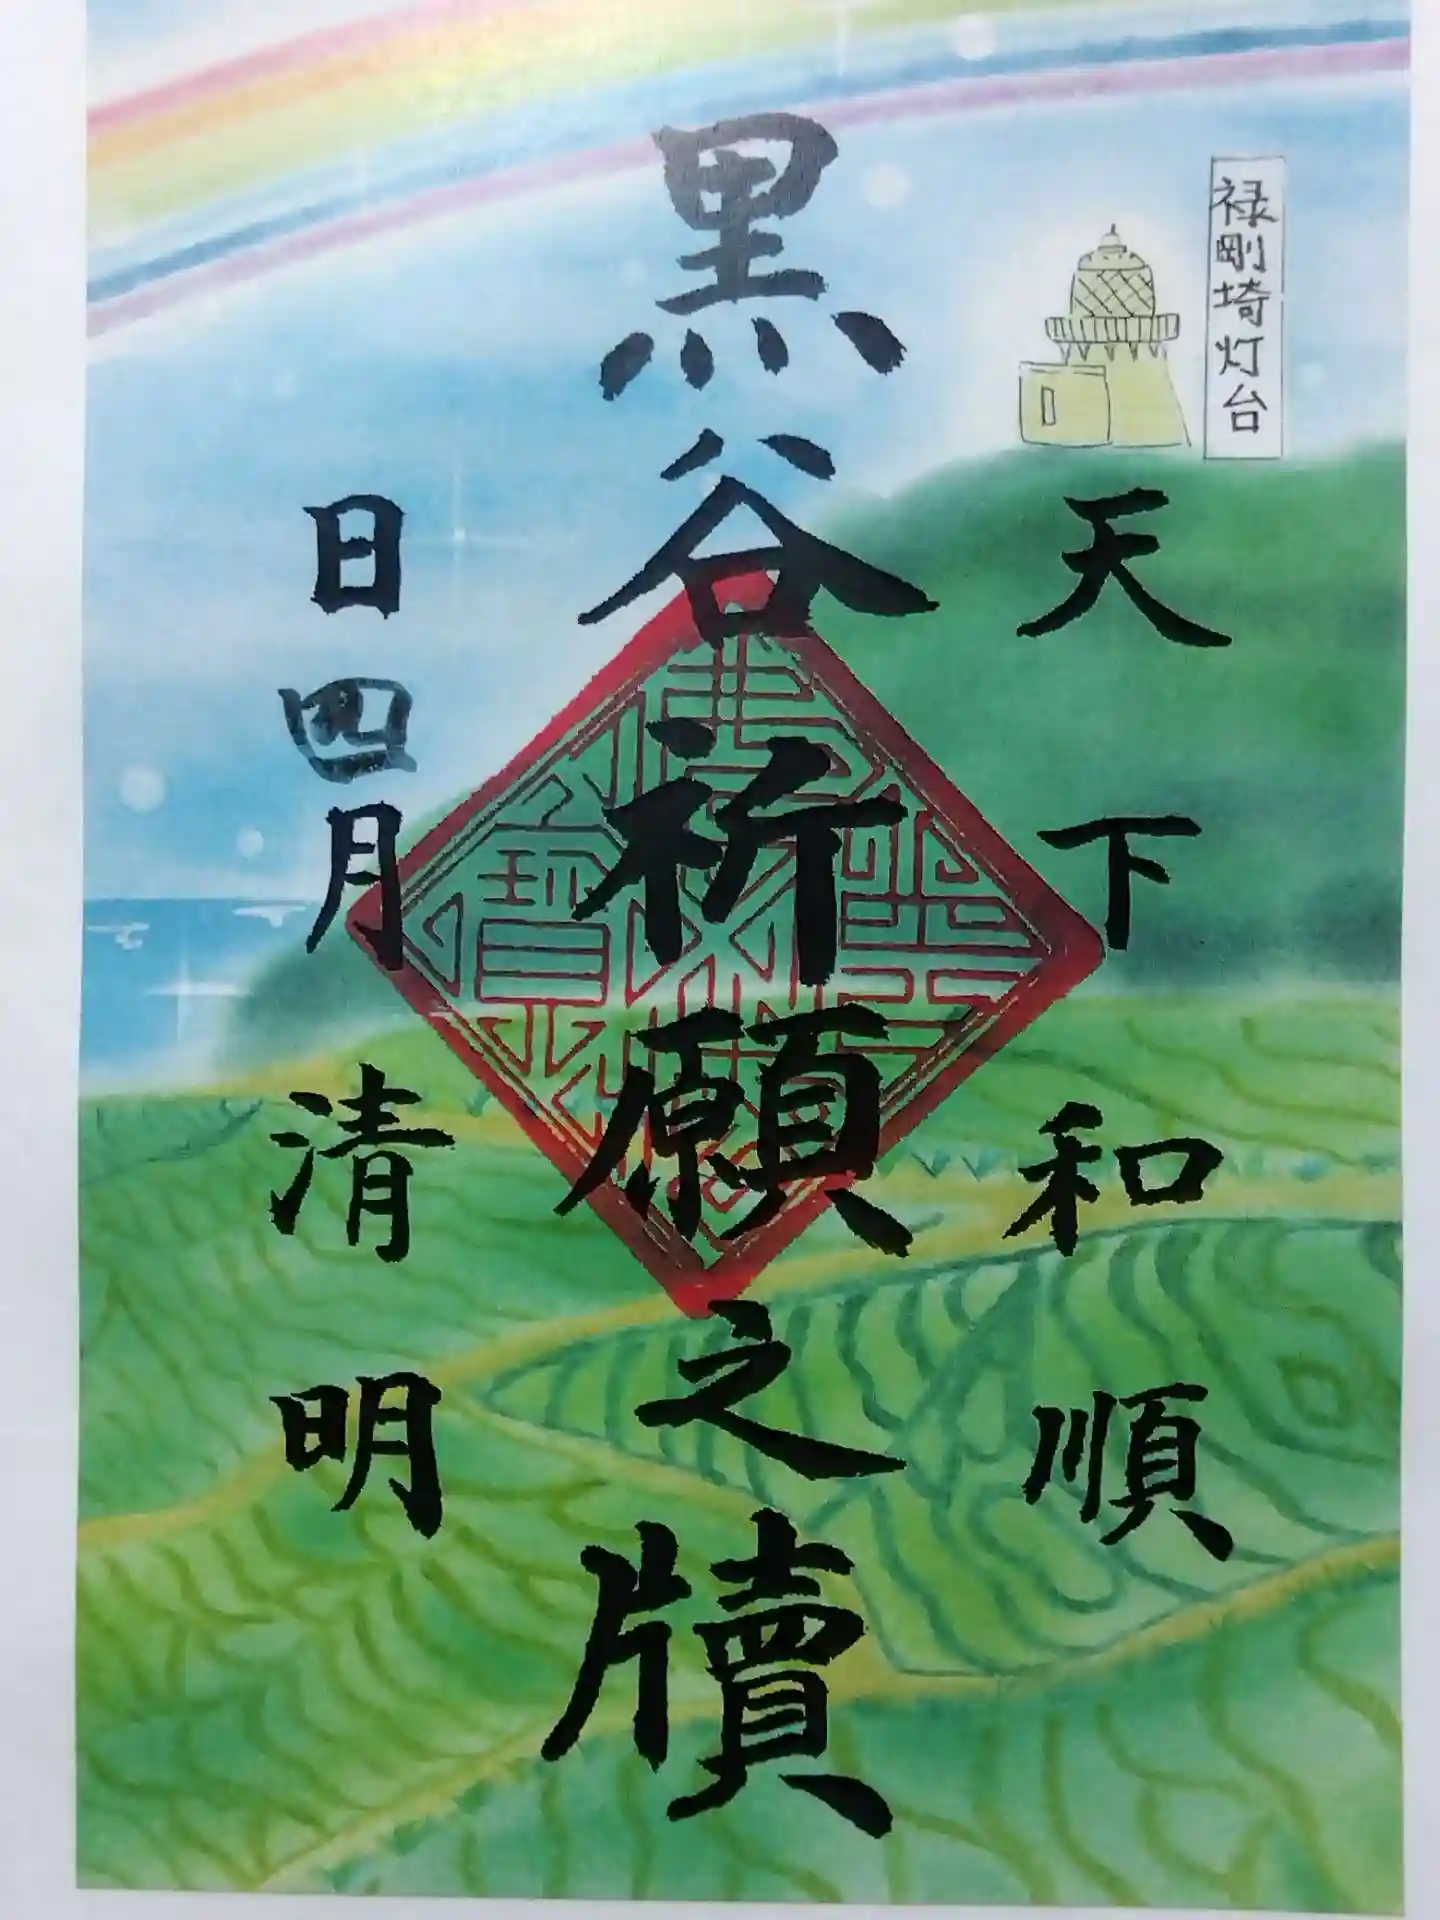 禄剛埼灯台
天下和順
黒谷祈願之牘
日四月清明